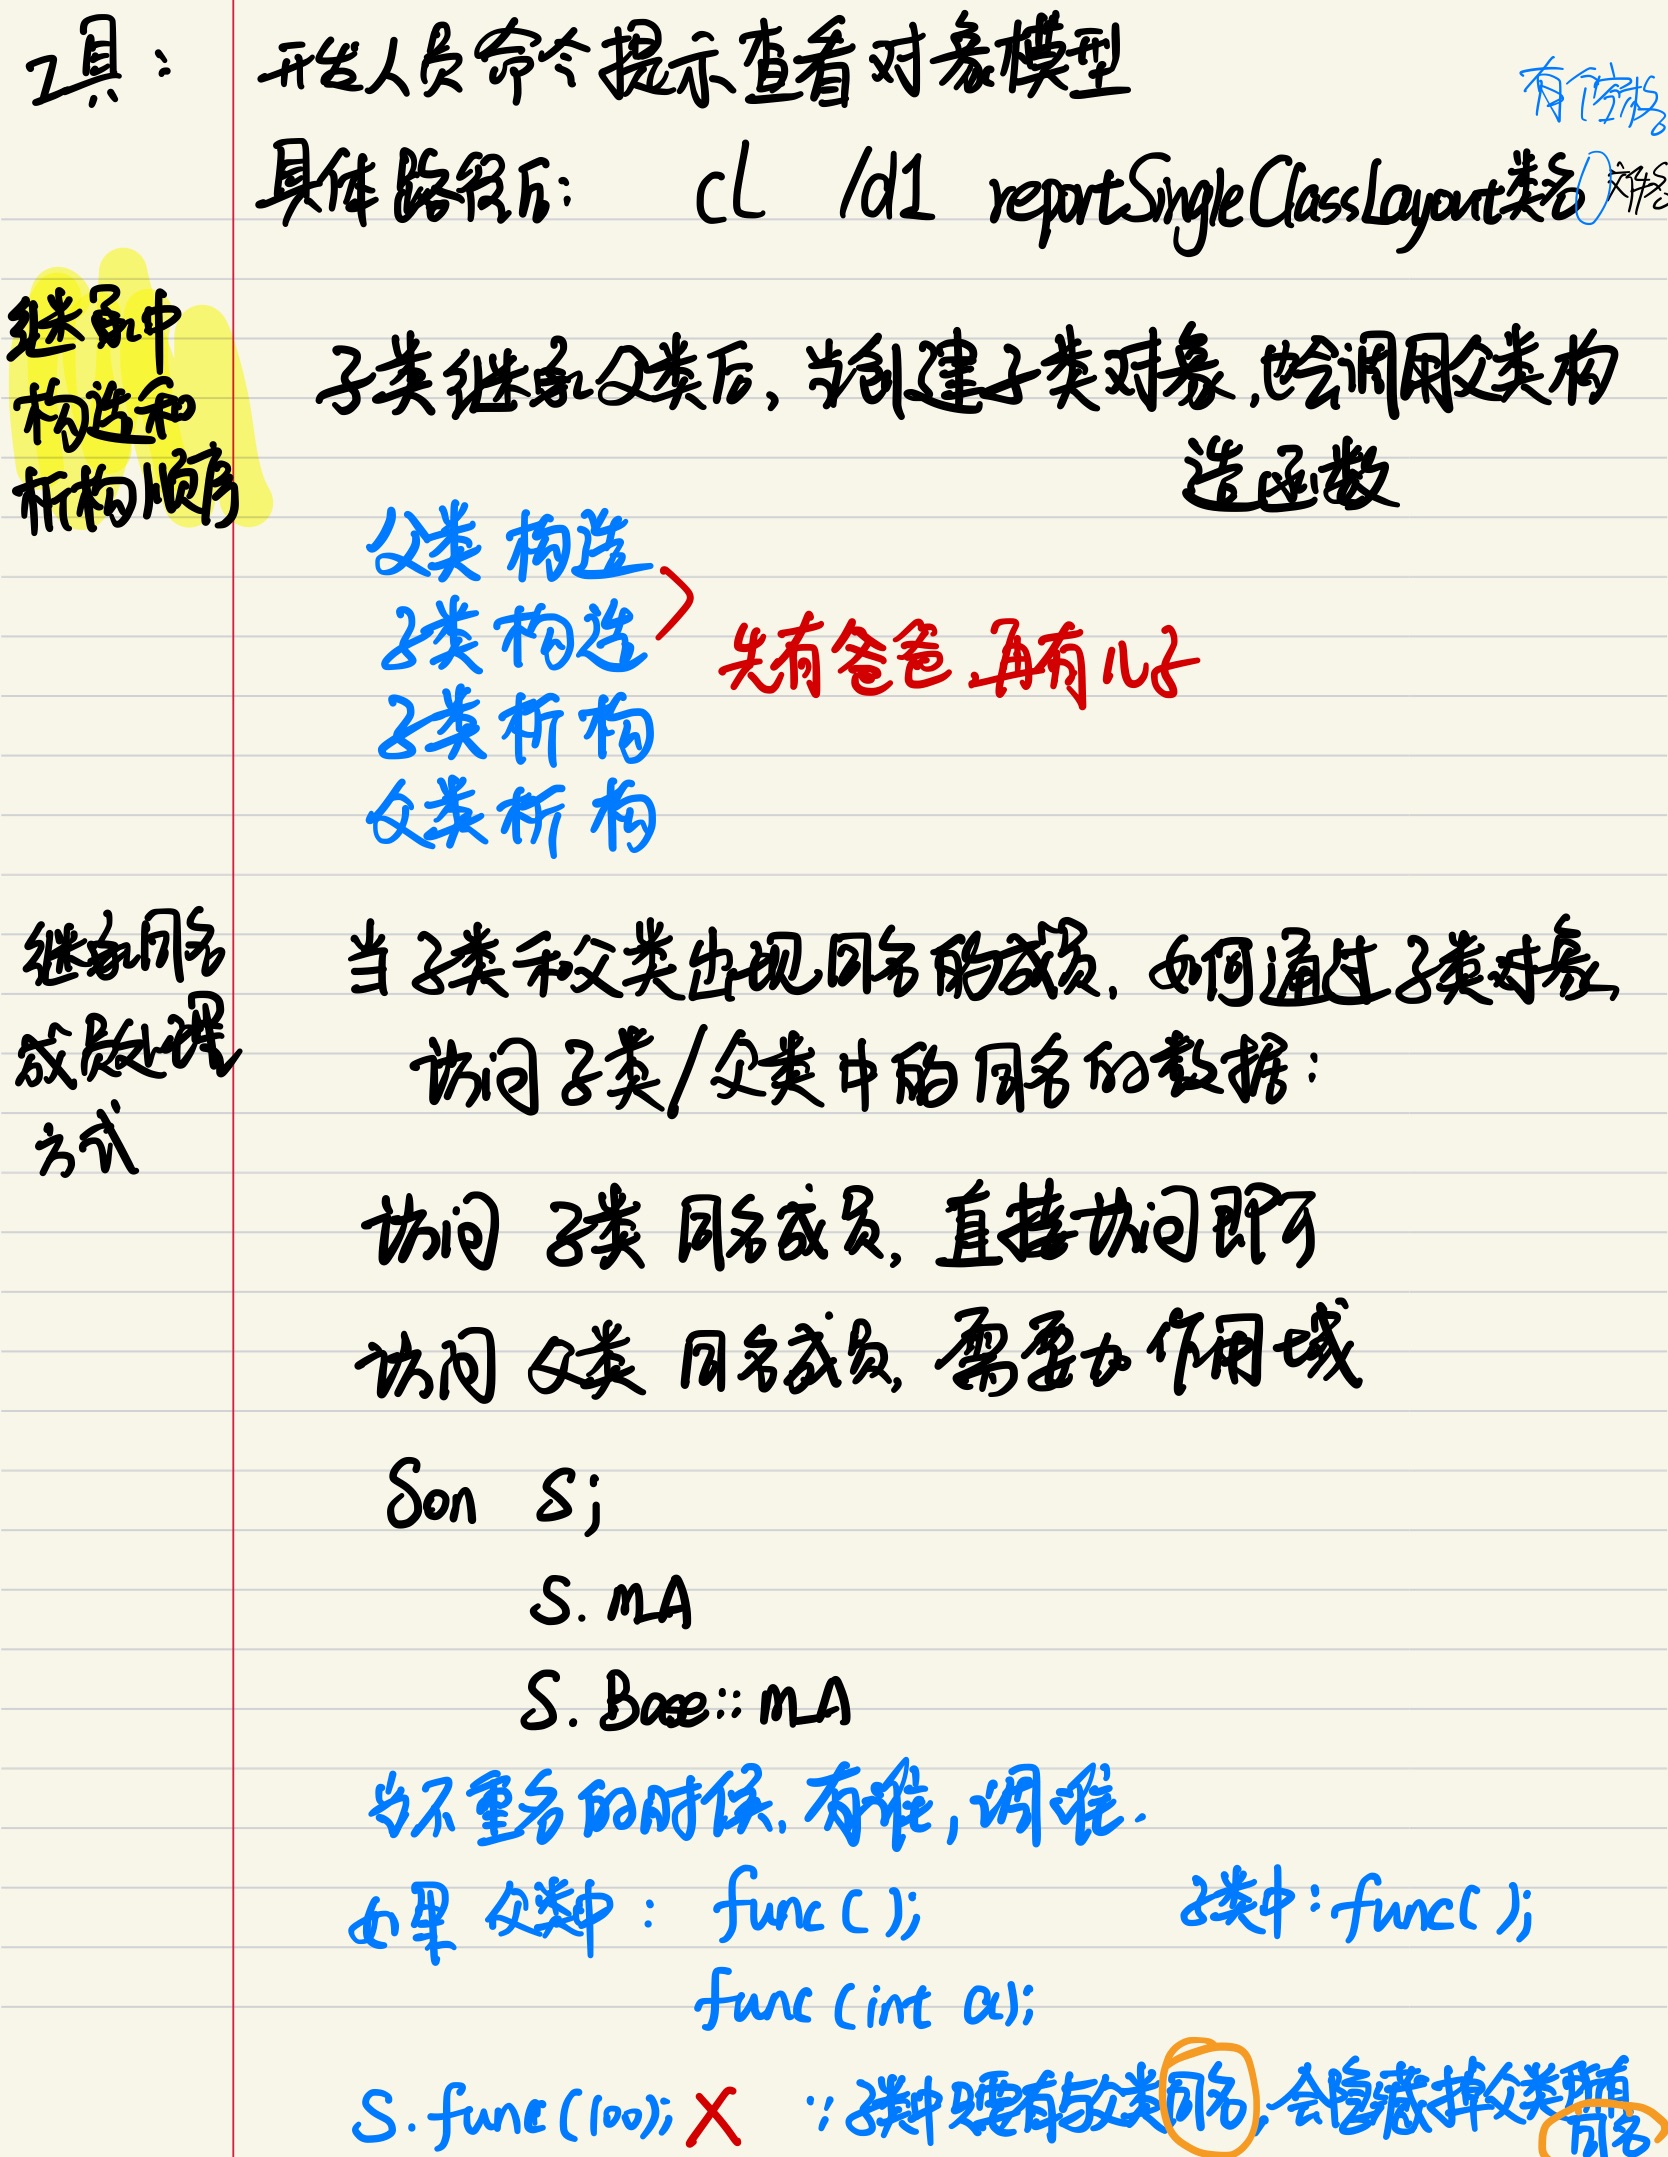 工具： 开发人员命令提示查看对象模型
有个空格
具体路径后： cl /d1 reportSingleClassLayout类名 文件名
继承中
构造和
析构顺序
子类继承父类后，当创建子类对象，也会调用父类构
造函数
父类构造
子类构造
先有爸爸，再有儿子
子类析构
父类析构
继承同名
成员处理
方式
当子类和父类出现同名的成员，如何通过子类对象，
访问子类/父类中的同名的数据：
访问 子类 同名成员，直接访问即可
访问 父类 同名成员，需要加作用域
Son S;
S.mA
S.Base::mA
当不重名的时候，有谁，调谁.
如果 父类中： func(); 子类中：func();
func(int a);
S.func(100); X ∵ 子类中只要有与父类同名，会隐藏掉父类所有
同名